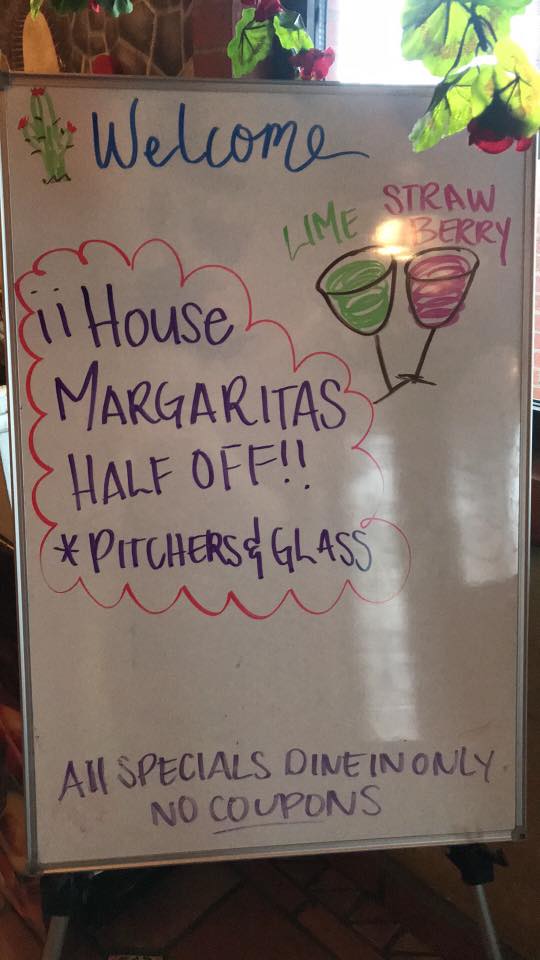 Welcome
LIME STRAW
BERRY
¡¡House
MARGARITAS
HALF OFF!!
*PITCHERS & GLASS
All SPECIALS DINE IN ONLY
NO COUPONS